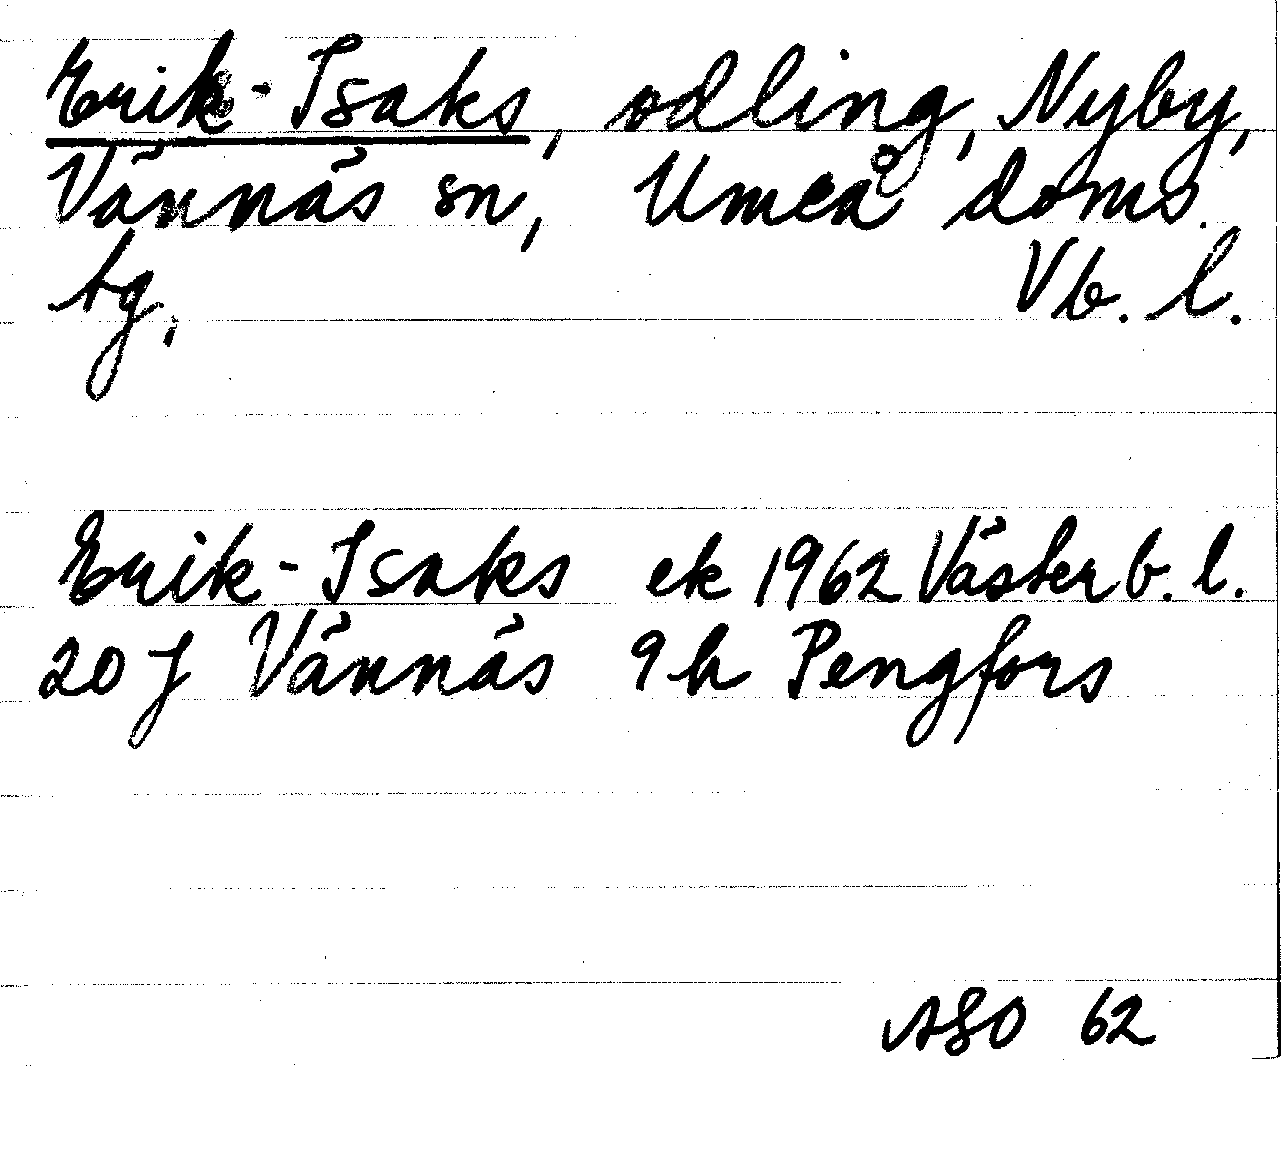 Erik-Isaks, odling, Nyby,
Vännäs sn, Umeå doms.
tg, Vb. l.
Erik-Isaks ek 1962 Västerb. l.
20 J Vännäs 9 h Pengfors
ASO 62